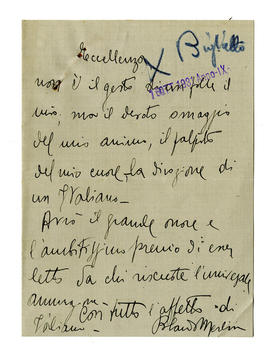 Eccellenza
X Biglietto
non è il gesto d'un folle il
mio, ma il devoto omaggio
del mio animo, il palpito
del mio cuore, la divozione di
un Italiano_
Avrò il grande onore e
l'ambitissimo premio di esser
letto da chi riscuote l'universale
Con tutto l'affetto di
Italiano_